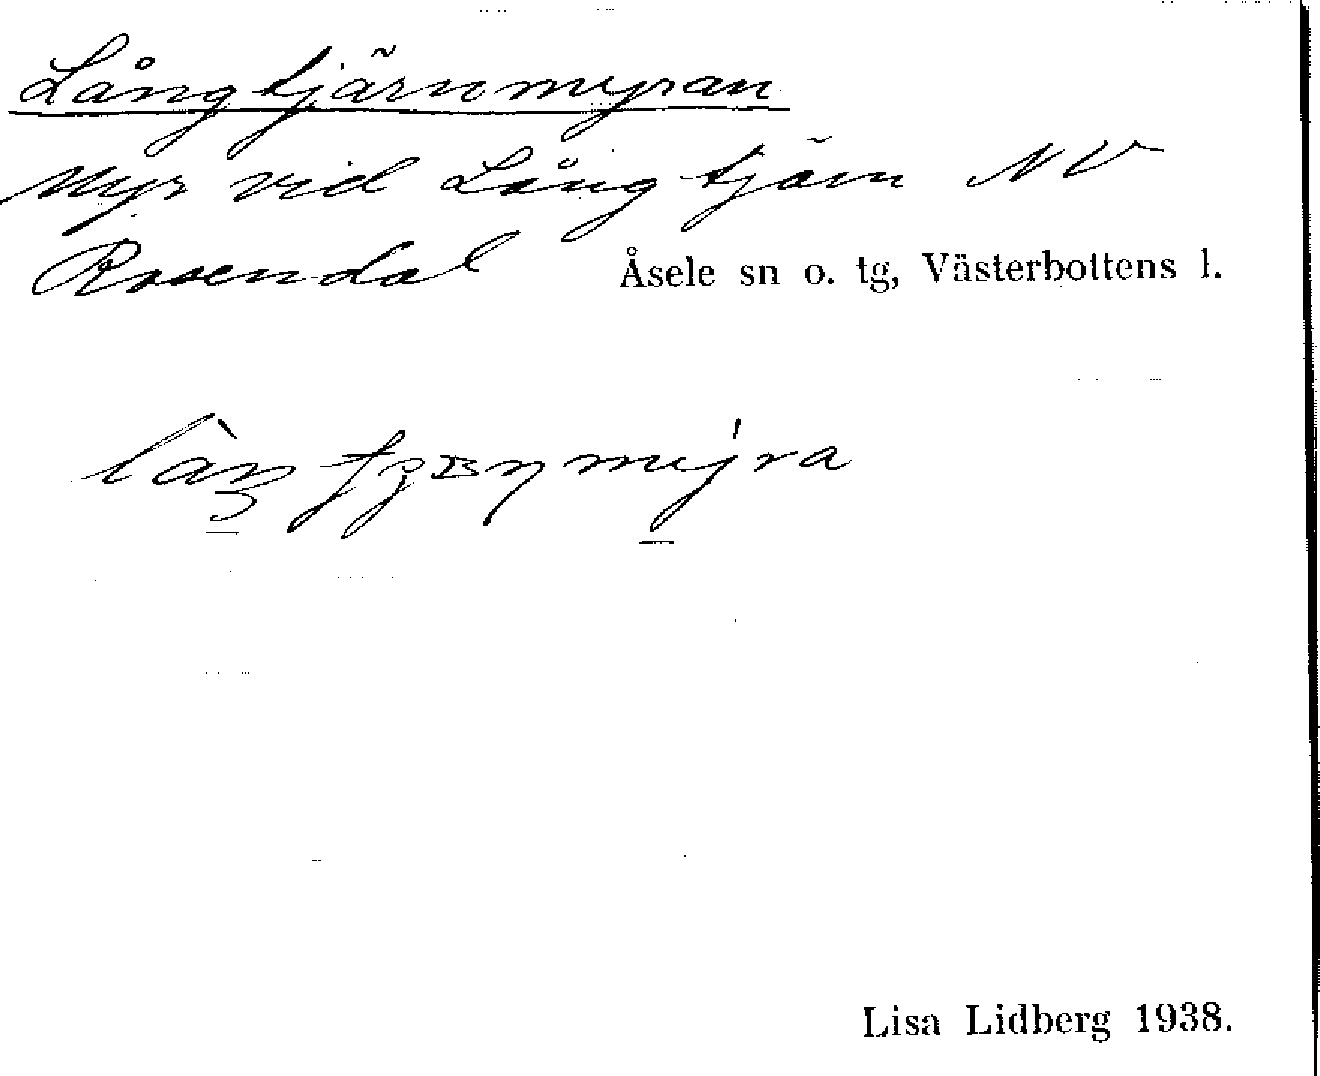 Långtjärnmyran
Myr vid Långtjärn NV
Rosendal Åsele sn o. tg, Västerbottens l.
Lisa Lidberg 1938.